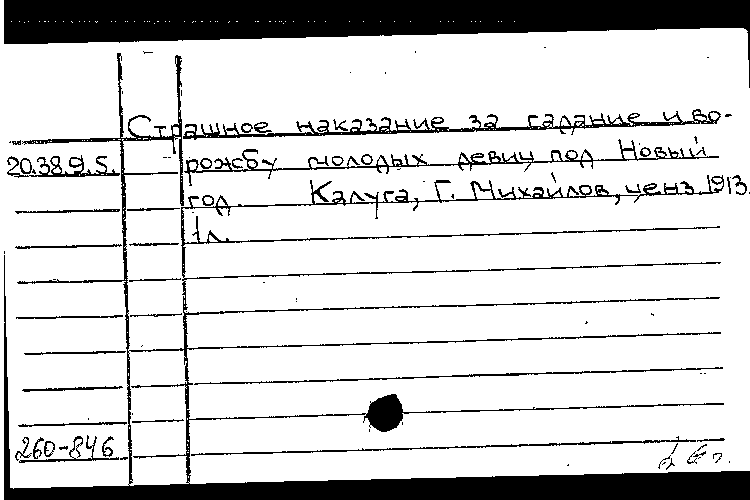 Страшное наказание за гадание и во-
20.38.9.5. рожбу молодых девиц под Новый
год. Калуга, Г. Михайлов, ценз. 1913.
1л.
260-846